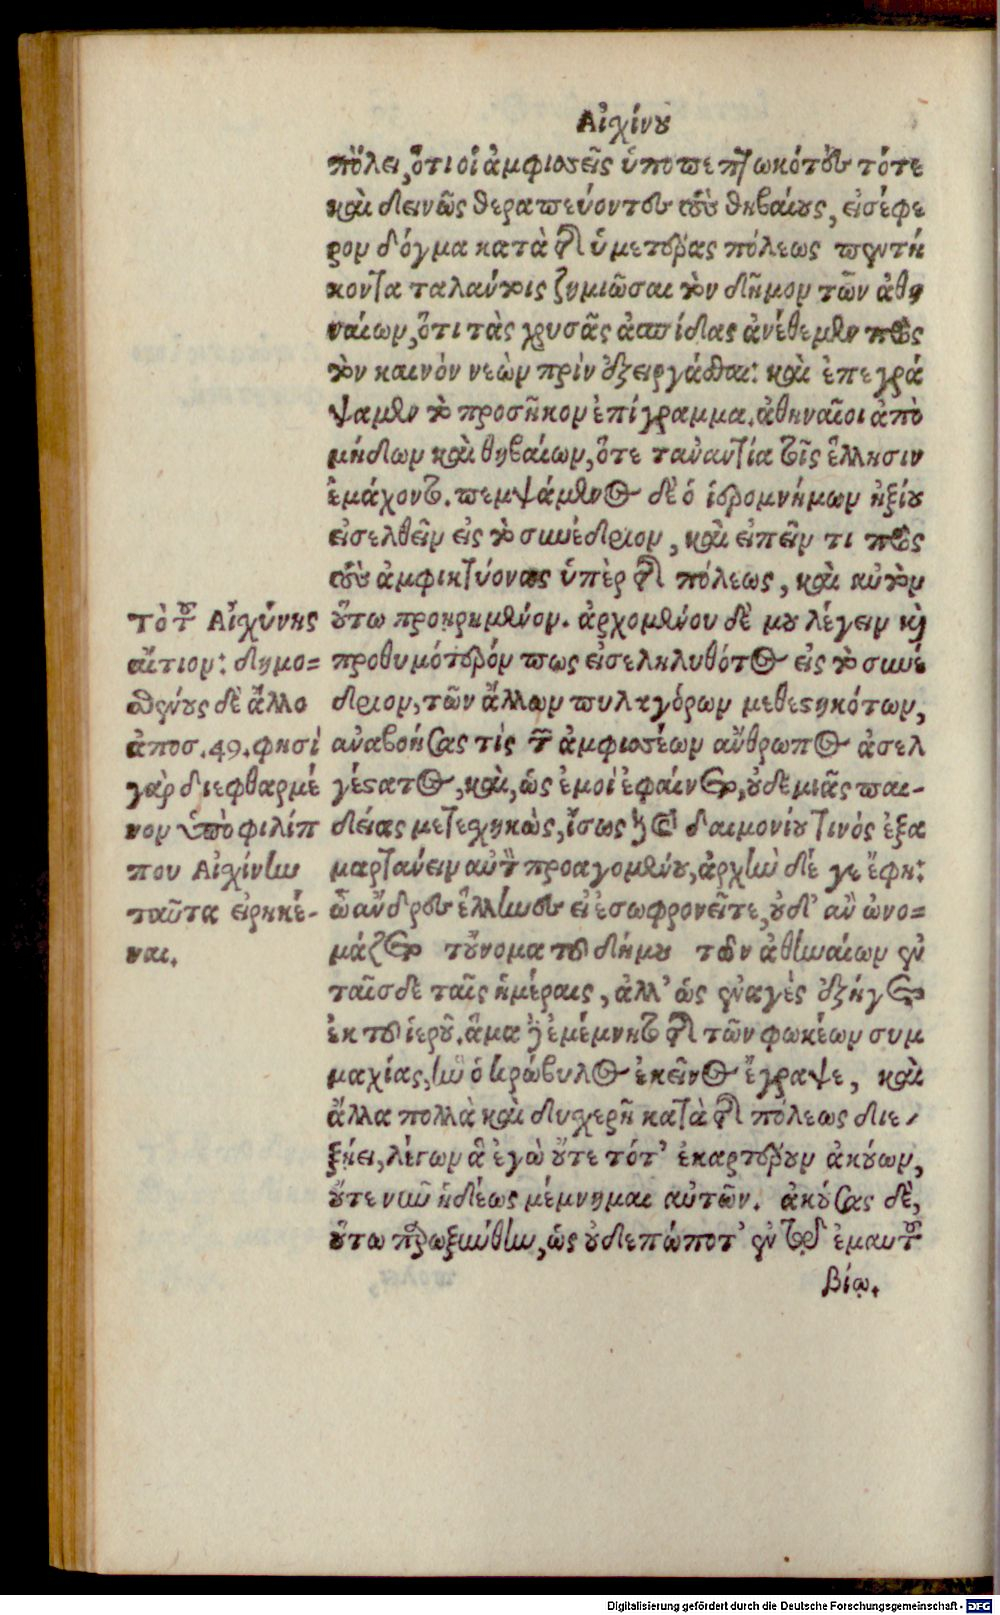 Αἰχίνου
πόλει, ὅτι οἱ ἀμφισσεῖς ὑποπεπτωκότες τότε
καὶ δεινῶς θεραπεύοντες τοὺς θηβαίους, εἰσέφε
ρον δόγμα κατὰ τῆς ὑμετέρας πόλεως πεντή
κοντα ταλάντοις ζημιῶσαι τὸν δῆμον τῶν ἀθη
ναίων, ὅτι τὰς χρυσᾶς ἀσπίδας ἀνέθεμεν πρὸς
τὸν καινὸν νεὼν πρὶν ἐξειργάσθαι: καὶ ἐπεγρά
ψαμεν τὸ προσῆκον ἐπίγραμμα. ἀθηναῖοι ἀπὸ
μήδων καὶ θηβαίων, ὅτε τἀναντία τοῖς ἕλλησιν
ἐμάχοντο. πεμψάμενος δὲ ὁ ἱερομνήμων ἠξίου
εἰσελθεῖν εἰς τὸ συνέδριον, καὶ εἰπεῖν τι πρὸς
τοὺς ἀμφικτύονας ὑπὲρ τῆς πόλεως, καὶ αὐτὸν
οὕτω προῃρημένον. ἀρχομένου δέ μου λέγειν καὶ
προθυμότερόν πως εἰσεληλυθότος εἰς τὸ συνέ
δριον, τῶν ἄλλων πυλαγόρων μεθεστηκότων,
ἀναβοήσας τίς τῶν ἀμφισσέων ἄνθρωπος ἀσελ
γέστατος, καὶ, ὡς ἐμοὶ ἐφαίνετο, οὐδεμιᾶς παι-
δείας μετεσχηκὼς, ἴσως δὲ καὶ δαιμονίου τινὸς ἐξα
μαρτάνειν αὐτὸν προαγομένου, ἀρχὴν δέ γε ἔφη:
ὦ ἄνδρες ἕλληνες εἰ ἐσωφρονεῖτε, οὐδ' ἂν ὠνο=
μάζετο τοὔνομα τοῦ δήμου τῶν ἀθηναίων ἐν
ταῖσδε ταῖς ἡμέραις, ἀλλ' ὡς ἐναγὲς ἐξήγετο
ἐκ τοῦ ἱεροῦ. ἅμα δὲ ἐμέμνητο τῆς τῶν φωκέων συμ
μαχίας, ἣν ὁ κρώβυλος ἐκεῖνος ἔγραψε, καὶ
ἄλλα πολλὰ καὶ δυχερῆ κατὰ τῆς πόλεως διε-
ξῄει, λέγων ἃ ἐγὼ οὔτε τότ' ἐκαρτέρουν ἀκούων,
οὔτε νῦν ἡδέως μέμνημαι αὐτῶν. ἀκούσας δὲ,
οὕτω παρωξύνθην, ὡς οὐδεπώποτ' ἐν τῷ ἐμαυτοῦ
βίῳ.
τὸν Αἰχύνης
αἴτιον: δημο=
σθένους δὲ ἄλλο
ἀποσ. 49. φησὶ
γὰρ διεφθαρμέ
νον ὑπὸ φιλίπ
που Αἰχίνην
ταῦτα εἰρηκέ-
ναι.
Digitalisierung gefördert durch die Deutsche Forschungsgemeinschaft - DFG